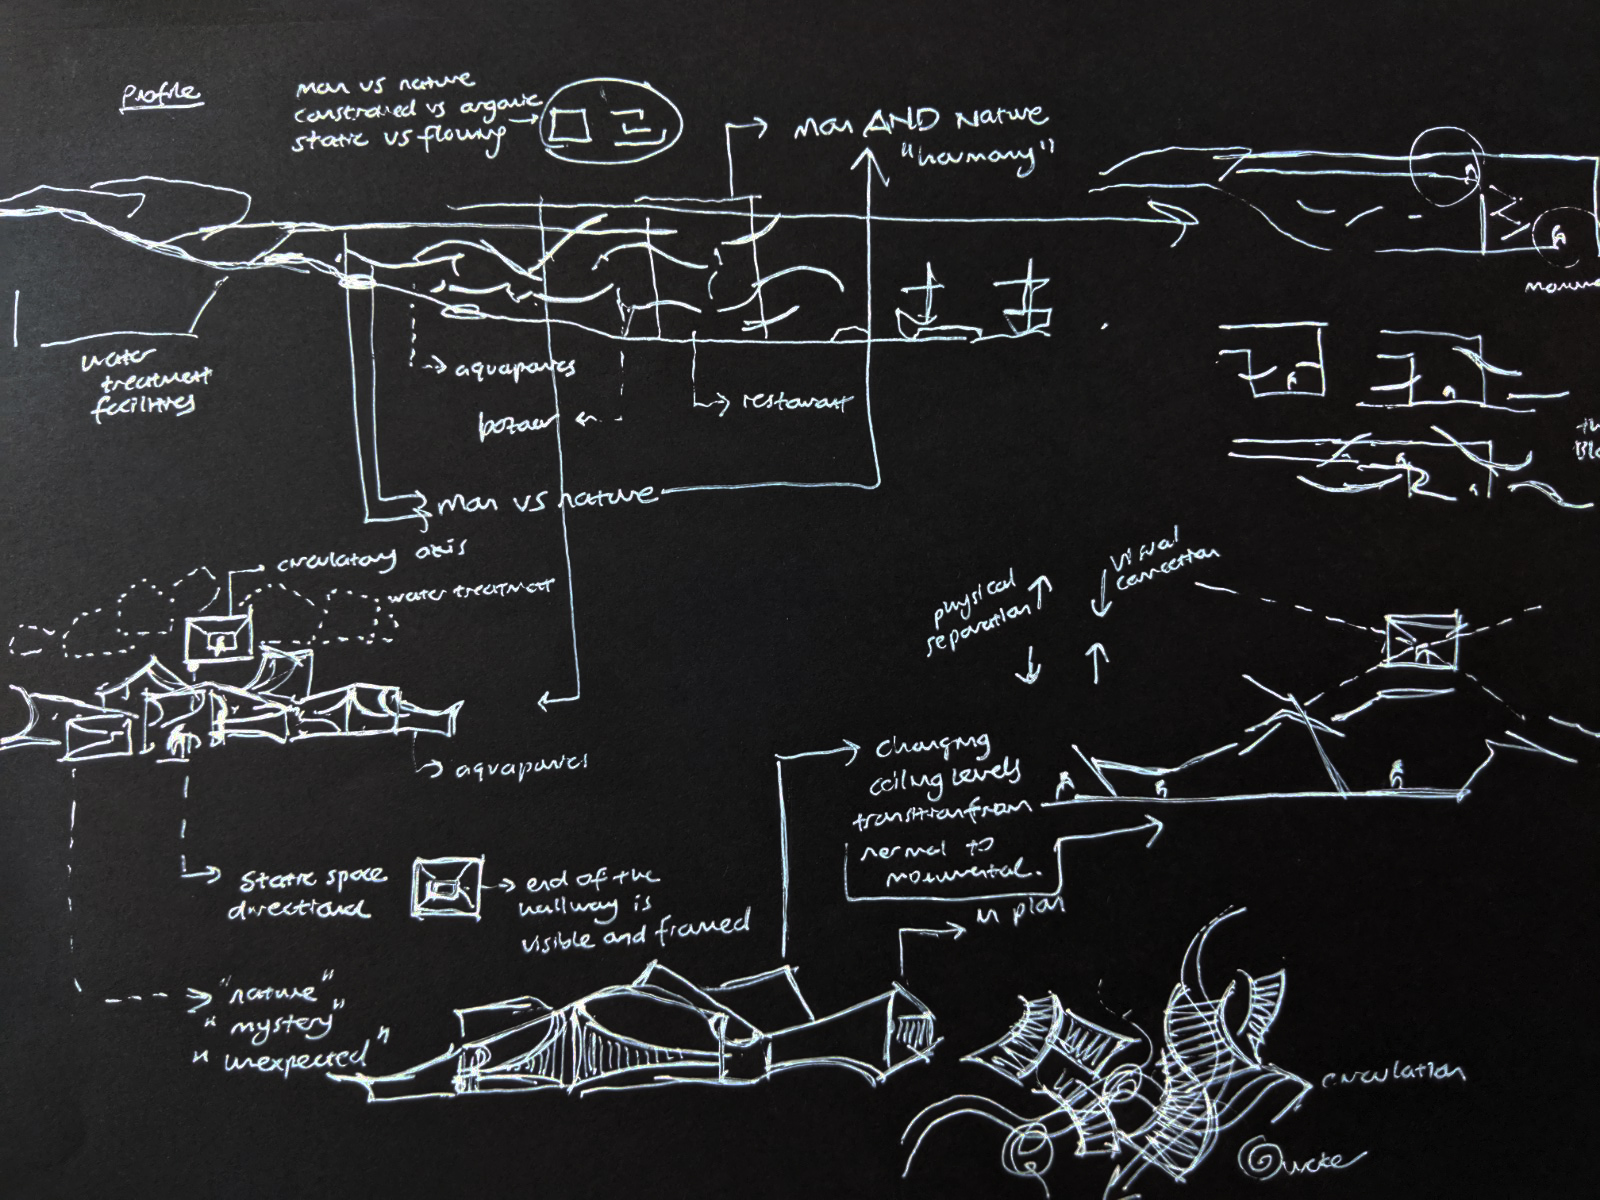 Profile
man vs nature
constrained vs organic
static vs flowing
man AND nature
"harmony"
water
treatment
facilities
aquaponics
bazaar
restaurant
man vs nature
circulatory axis
water treatment
physical
separation
visual
connection
aquaponics
changing
ceiling levels
transition from
normal to
monumental.
static space
directional
end of the
hallway is
visible and framed
in plan
"nature"
"mystery"
"unexpected"
circulation